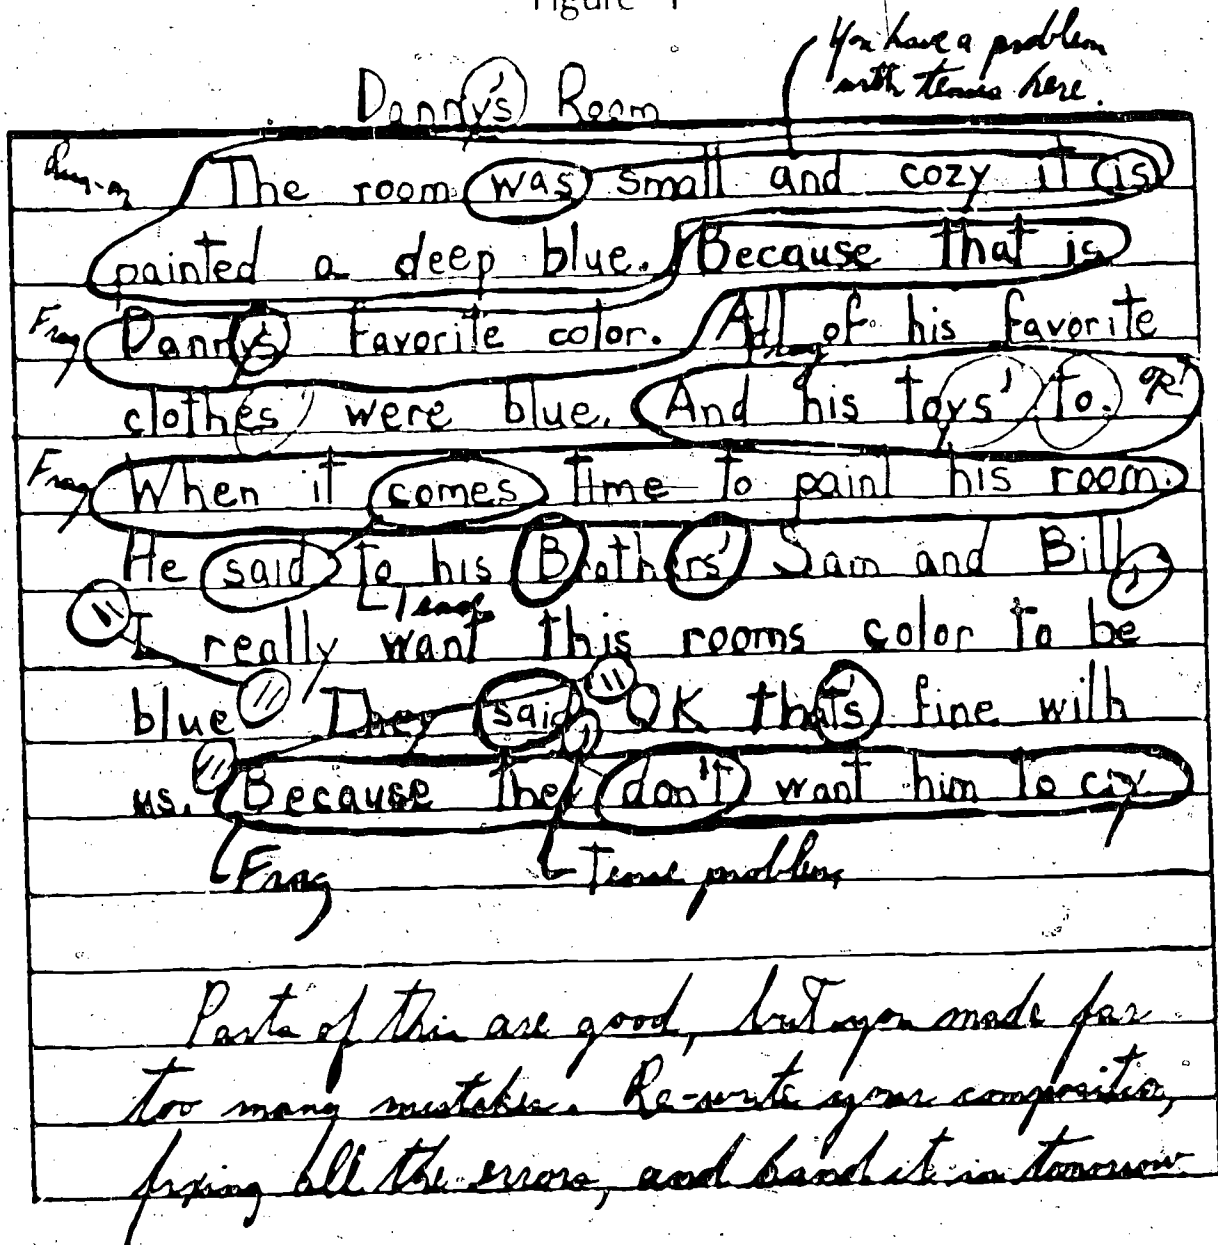 Figure 1
You have a problem
with tense here.
Danny's Room
Run-on
The room was small and cozy it is
painted a deep blue. Because that is
Frag
Danny's favorite color. All of his favorite
Frag
clothes' were blue. And his toys' to.
Frag
When it comes time to paint his room.
He said to his Brothers' Sam and Bill,
Tense
" I really want this rooms color to be
blue " They said, " OK that's fine with
us. " Because they don't want him to cry
Frag
Tense problem
Parts of this are good, but you made far
too many mistakes. Re-write your composition,
fixing all the errors, and hand it in tomorrow.